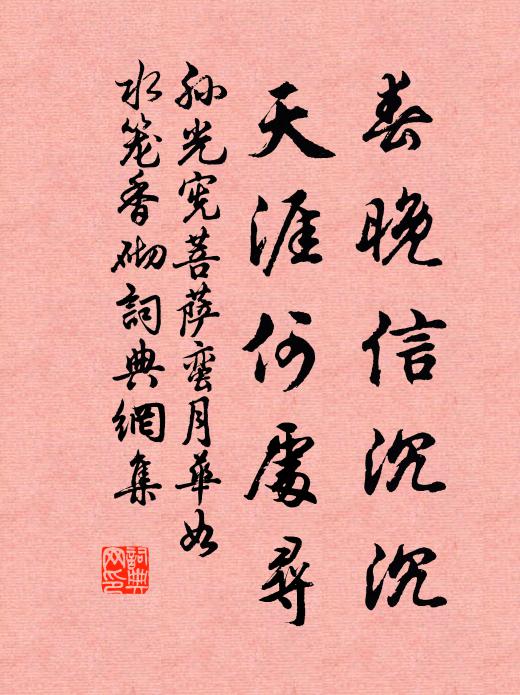 春晚信沉沉
天涯何處尋
孫光憲菩薩蠻月華如
水籠香砌詞典網集
詞典
网印